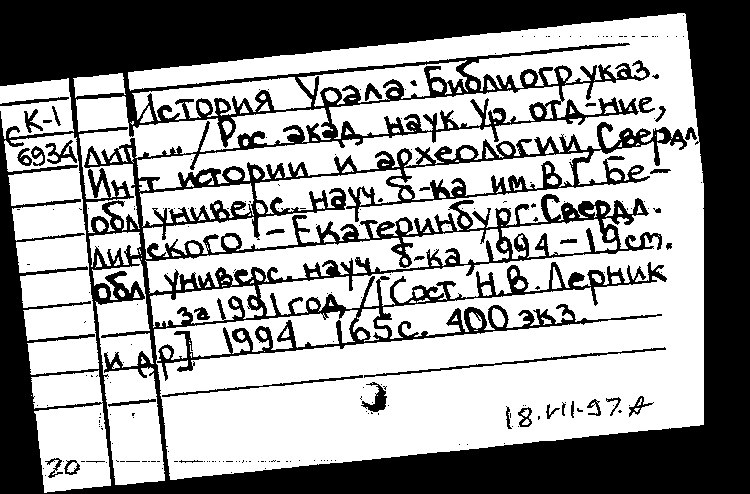 История Урала: Библиогр. указ.
сК-1
6934
лит. ... / Рос. акад. наук. Ур. отд-ние,
Ин-т истории и археологии, Свердл.
обл. универс. науч. б-ка им. В.Г. Бе-
линского. - Екатеринбург: Свердл.
обл. универс. науч. б-ка, 1994 - 19 cm.
... за 1991 год / [Сост. Н.В. Лерник
и др] 1994. 165 с. 400 экз.
18.VII-97. А
20